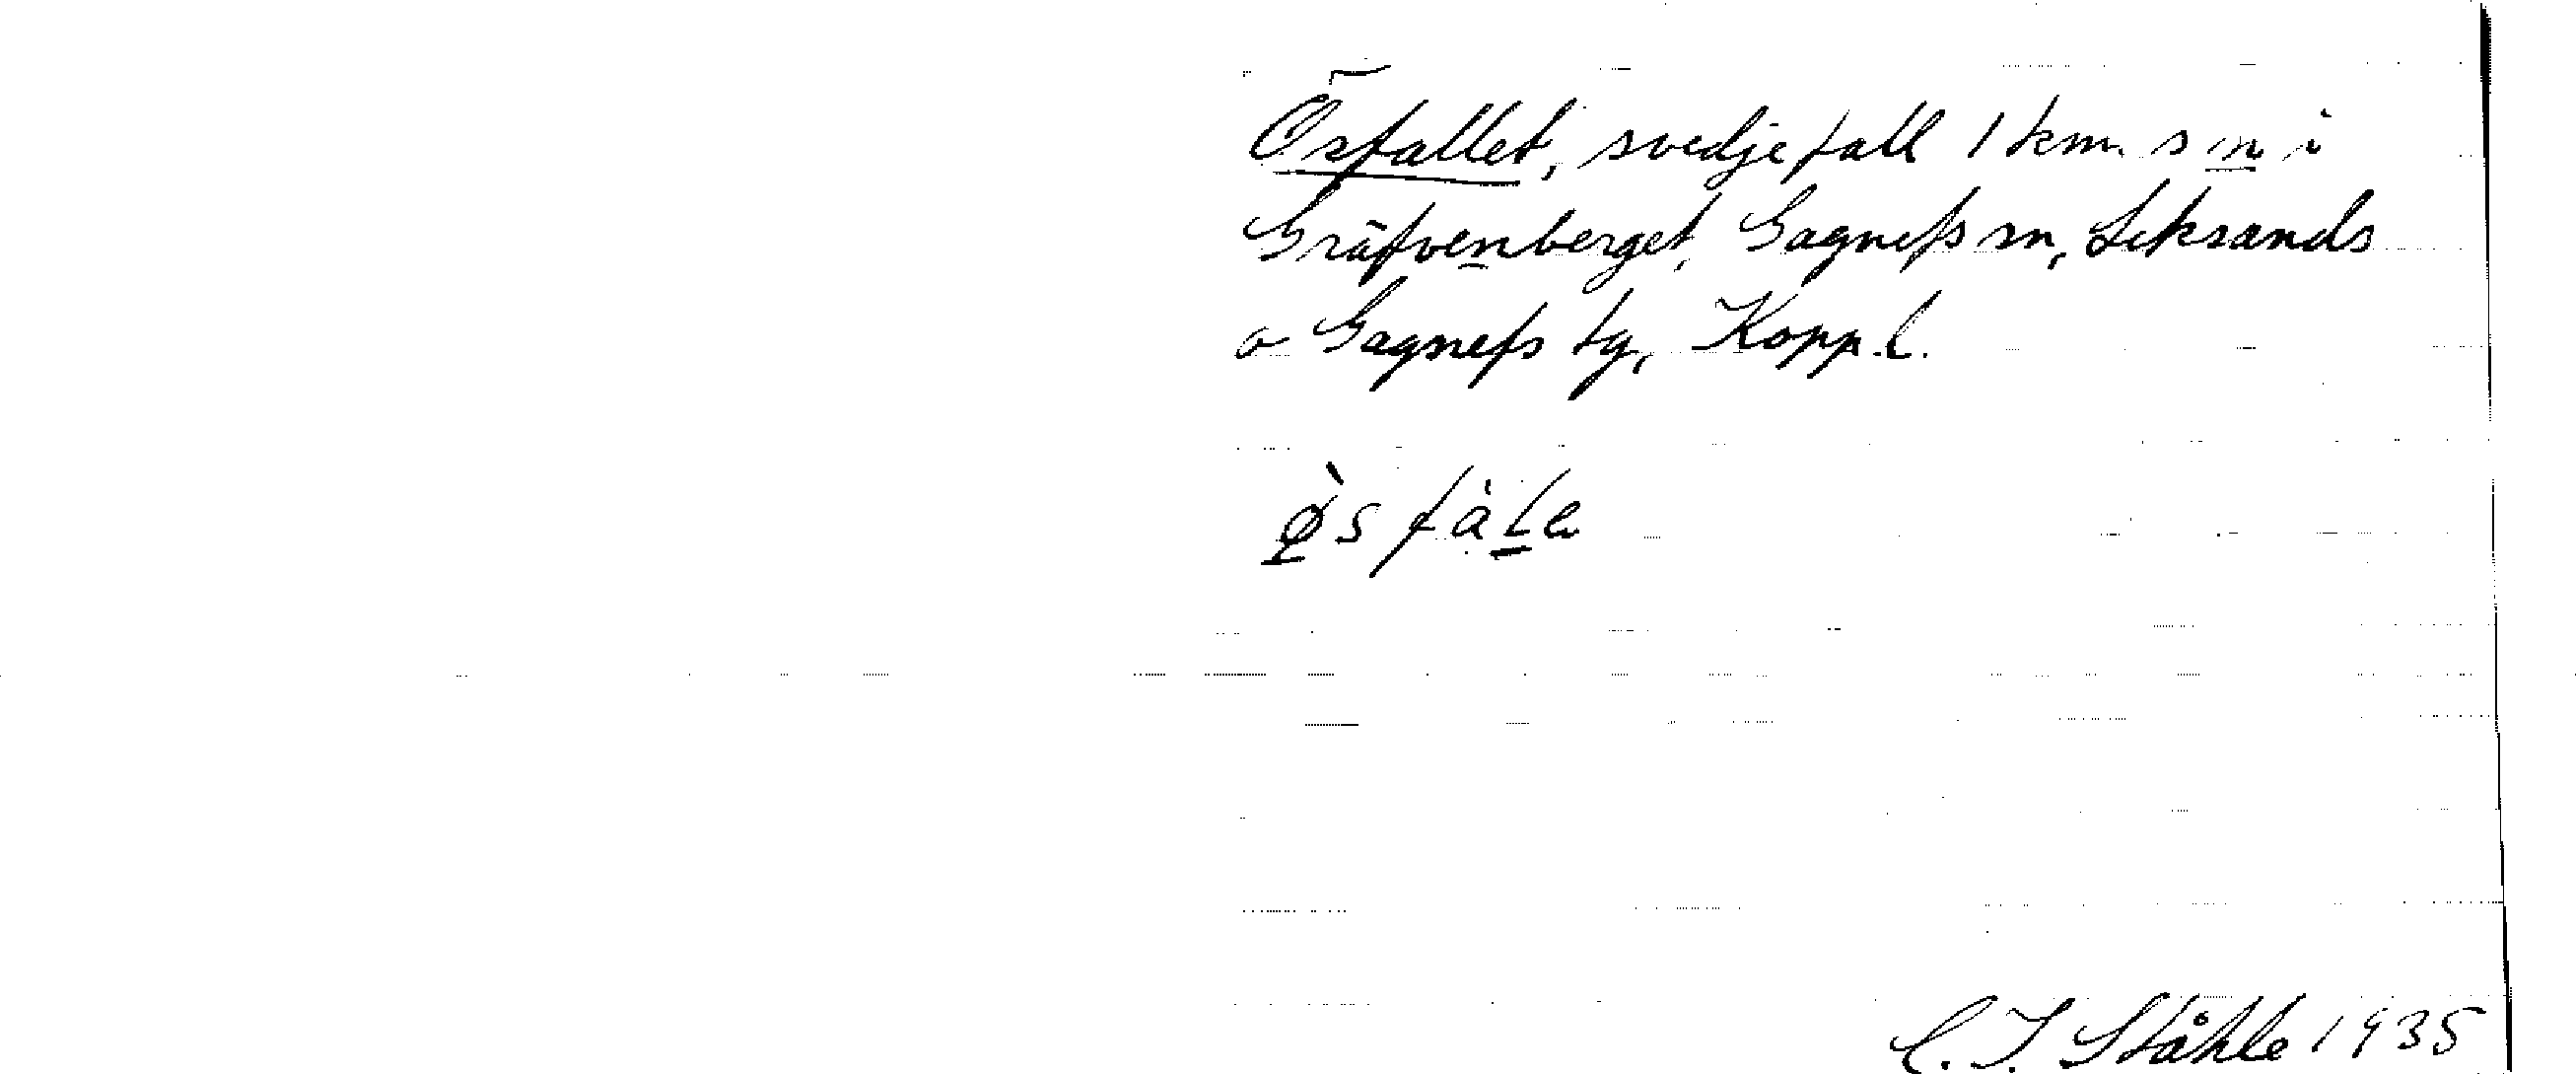 Ösfallet, svedjefall 1 km. s m i
Gräfvenberget, Gagnefs sn, Leksands
o Gagnefs tg, Kopp. l.
C. I. Ståhle 1935